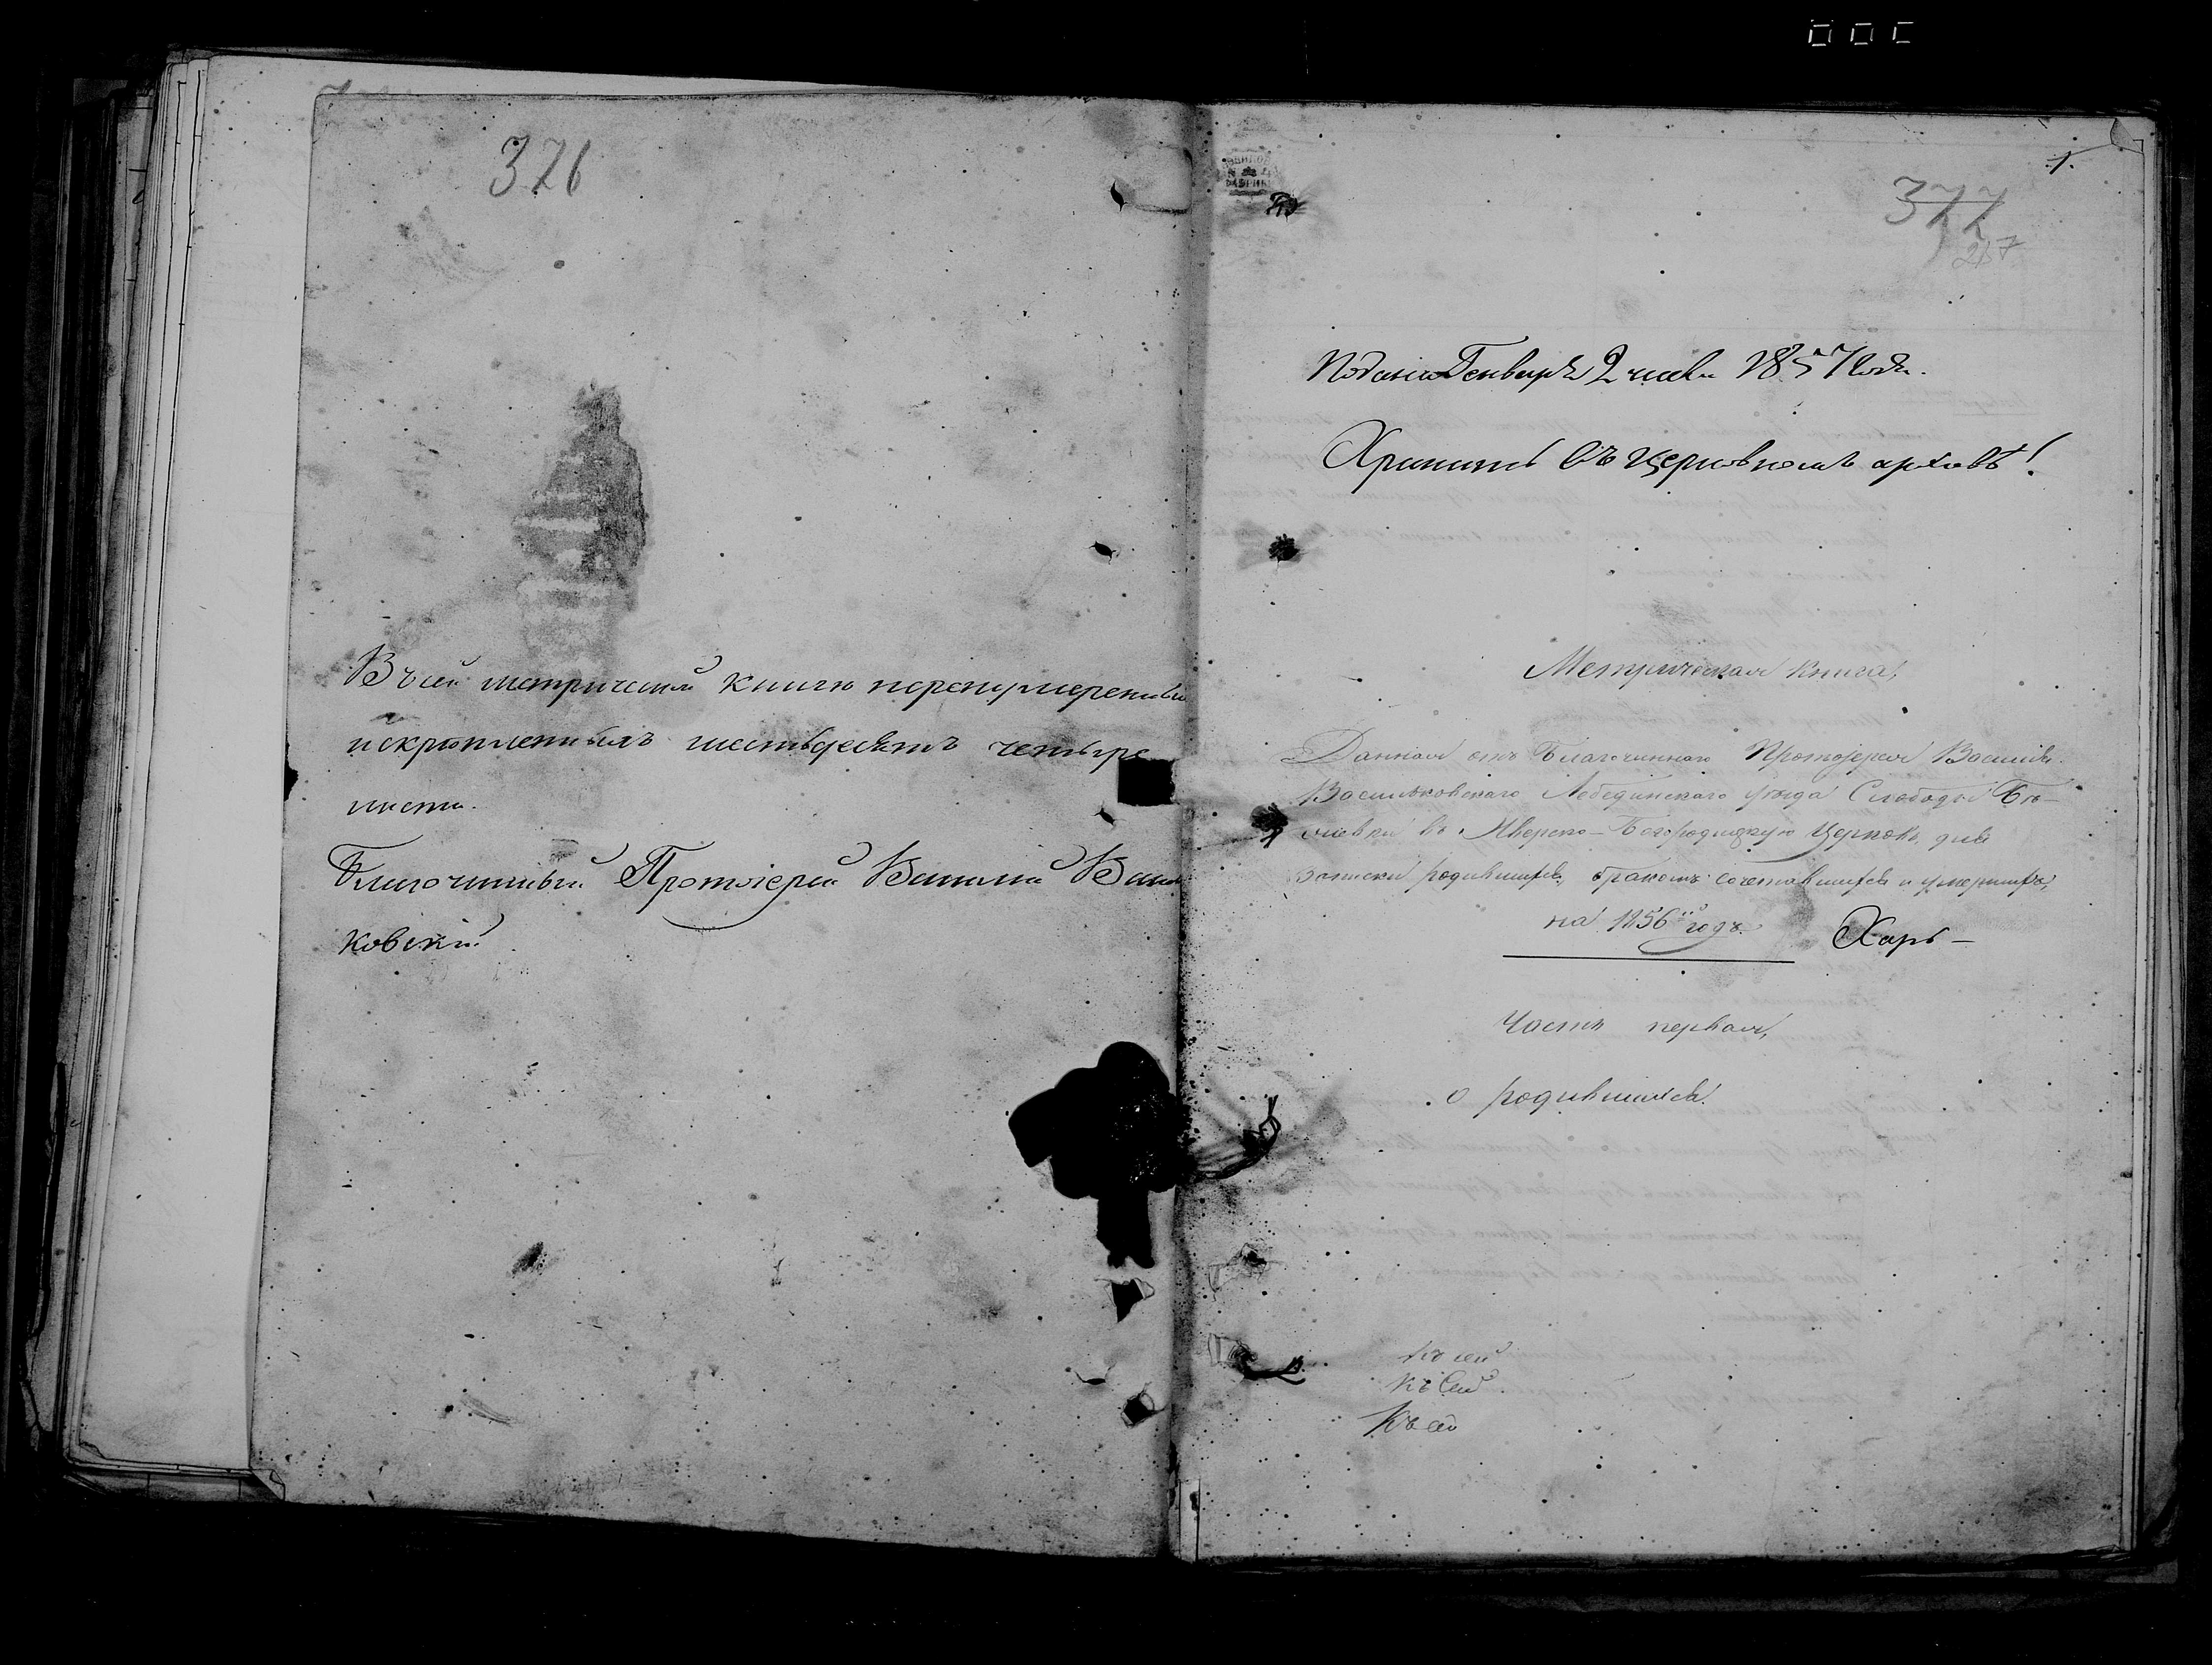 376
Въ сей метрической книгѣ перенумерованныхъ
и скрѣпленныхъ шестьдесятъ четыре
листа.
Благочинный Протоіерей Василій Василь
ковскій
1.
377
Подана Генваря 2 числа 1857 года.
Хранить въ церковномъ архивѣ!
Метрическая книга,
Данная отъ Благочиннаго Протоіерея Василія
Васильковскаго Лебединскаго уѣзда Слободы Бѣ-
въ Иверско-Богородицкую церковь для
записки родившихся, бракомъ сочетавшихся и умершихъ,
на 1856й годъ. Харь-
Часть первая,
о родившихся.
Къ сей
Къ сей
Къ сей